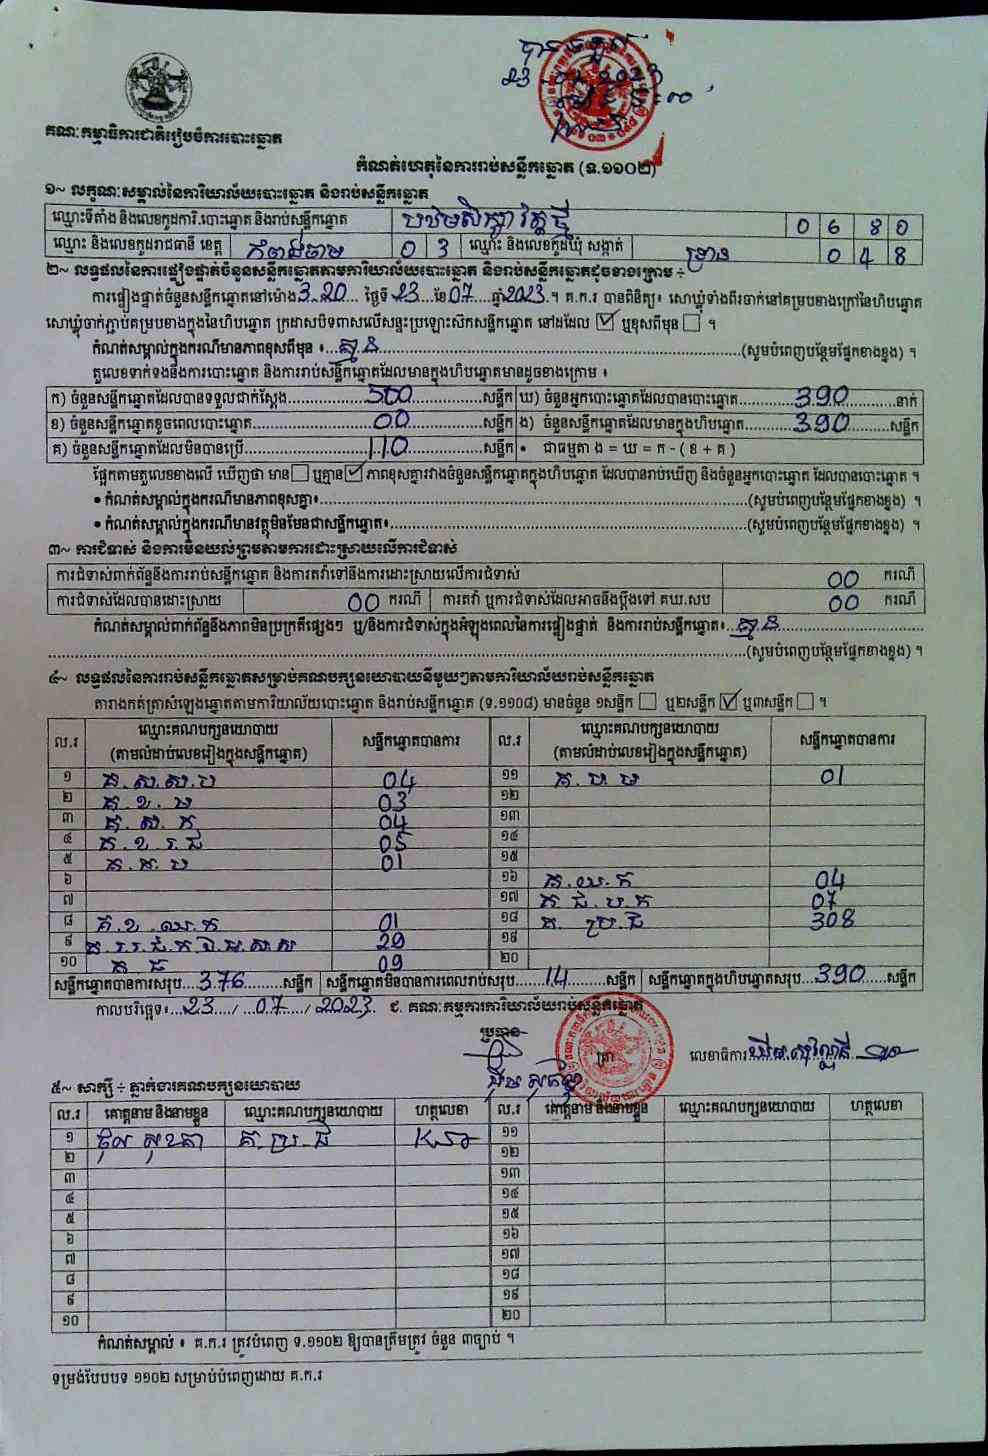 បានទទួល
គណៈកម្មាធិការជាតិរៀបចំការបោះឆ្នោត
កំណត់ហេតុនៃការរាប់សន្លឹកឆ្នោត (ទ.១១០២)
១~ លក្ខណៈសម្គាល់នៃការិយាល័យបោះឆ្នោត និងរាប់សន្លឹកឆ្នោត
ឈ្មោះទីតាំង និងលេខកូដការិ.បោះឆ្នោត និងរាប់សន្លឹកឆ្នោត បឋមសិក្សា វត្តថ្មី 0 6 8 0
ឈ្មោះ និងលេខកូដរាជធានី ខេត្ត កំពង់ចាម 0 3 ឈ្មោះ និងលេខកូដឃុំ សង្កាត់ ទ្រាន 0 4 8
២~ លទ្ធផលនៃការផ្ទៀងផ្ទាត់ចំនួនសន្លឹកឆ្នោតតាមការិយាល័យបោះឆ្នោត និងរាប់សន្លឹកឆ្នោតដូចខាងក្រោម ÷
ការផ្ទៀងផ្ទាត់ចំនួនសន្លឹកឆ្នោតនៅម៉ោង 3.20 ថ្ងៃទី 23 ខែ 07 ឆ្នាំ 2023 ។ គ.ក.រ បានពិនិត្យ៖ សោឃ្លុំទាំងពីរចាក់នៅគម្របខាងក្រៅនៃហិបឆ្នោត
សោឃ្លុំចាក់ភ្ជាប់គម្របខាងក្នុងនៃហិបឆ្នោត ក្រដាសបិទពាសលើសន្ទះប្រឡោះស៊កសន្លឹកឆ្នោត នៅដដែល ☑ ឬខុសពីមុន ☐ ។
កំណត់សម្គាល់ក្នុងករណីមានភាពខុសពីមុន ៖ គ្មាន (សូមបំពេញបន្ថែមផ្នែកខាងខ្នង) ។
តួលេខទាក់ទងនឹងការបោះឆ្នោត និងការរាប់សន្លឹកឆ្នោតដែលមានក្នុងហិបឆ្នោតមានដូចខាងក្រោម ៖
ក) ចំនួនសន្លឹកឆ្នោតដែលបានទទួលជាក់ស្តែង 500 សន្លឹក ឃ) ចំនួនអ្នកបោះឆ្នោតដែលបានបោះឆ្នោត 390 នាក់
ខ) ចំនួនសន្លឹកឆ្នោតខូចពេលបោះឆ្នោត 00 សន្លឹក ង) ចំនួនសន្លឹកឆ្នោតដែលមានក្នុងហិបឆ្នោត 390 សន្លឹក
គ) ចំនួនសន្លឹកឆ្នោតដែលមិនបានប្រើ 110 សន្លឹក • ជាធម្មតា ង = ឃ = ក - ( ខ + គ )
ផ្អែកតាមតួលេខខាងលើ ឃើញថា មាន ☐ ឬគ្មាន ☑ ភាពខុសគ្នារវាងចំនួនសន្លឹកឆ្នោតក្នុងហិបឆ្នោត ដែលបានរាប់ឃើញ និងចំនួនអ្នកបោះឆ្នោត ដែលបានបោះឆ្នោត ។
• កំណត់សម្គាល់ក្នុងករណីមានភាពខុសគ្នា៖ (សូមបំពេញបន្ថែមផ្នែកខាងខ្នង) ។
• កំណត់សម្គាល់ក្នុងករណីមានវត្ថុមិនមែនជាសន្លឹកឆ្នោត៖ (សូមបំពេញបន្ថែមផ្នែកខាងខ្នង) ។
៣~ ការជំទាស់ និងការមិនយល់ព្រមតាមការដោះស្រាយលើការជំទាស់
ការជំទាស់ពាក់ព័ន្ធនឹងការរាប់សន្លឹកឆ្នោត និងការតវ៉ាទៅនឹងការដោះស្រាយលើការជំទាស់ 00 ករណី
ការជំទាស់ដែលបានដោះស្រាយ 00 ករណី ការតវ៉ា ឬការជំទាស់ដែលអាចនឹងប្តឹងទៅ គឃ.សប 00 ករណី
កំណត់សម្គាល់ពាក់ព័ន្ធនឹងភាពមិនប្រក្រតីផ្សេងៗ ឬ/និងការជំទាស់ក្នុងអំឡុងពេលនៃការផ្ទៀងផ្ទាត់ និងការរាប់សន្លឹកឆ្នោត៖ គ្មាន
(សូមបំពេញបន្ថែមផ្នែកខាងខ្នង) ។
៤~ លទ្ធផលនៃការរាប់សន្លឹកឆ្នោតសម្រាប់គណបក្សនយោបាយនីមួយៗតាមការិយាល័យរាប់សន្លឹកឆ្នោត
តារាងកត់ត្រាសំឡេងឆ្នោតតាមការិយាល័យបោះឆ្នោត និងរាប់សន្លឹកឆ្នោត (ទ.១១០៨) មានចំនួន ១សន្លឹក ☐ ឬ២សន្លឹក ☑ ឬ៣សន្លឹក ☐ ។
ល.រ ឈ្មោះគណបក្សនយោបាយ (តាមលំដាប់លេខរៀងក្នុងសន្លឹកឆ្នោត) សន្លឹកឆ្នោតបានការ ល.រ ឈ្មោះគណបក្សនយោបាយ (តាមលំដាប់លេខរៀងក្នុងសន្លឹកឆ្នោត) សន្លឹកឆ្នោតបានការ
១ គ.ស.ស.ប 04 ១១ គ.ប.ម 01
២ គ.ខ.ម 03 ១២
៣ គ.ស.ក 04 ១៣
៤ គ.ខ.រ.ជ 05 ១៤
៥ គ.គ.ប 01 ១៥
៦ ១៦ គ.យ.ក 04
៧ ១៧ គ.ជ.ប.ក 07
៨ គ.ខ.ឈ.ក 01 ១៨ គ.ប្រ.ជ 308
៩ 29 ១៩
១០ គ ធ 09 ២០
សន្លឹកឆ្នោតបានការសរុប 376 សន្លឹក សន្លឹកឆ្នោតមិនបានការពេលរាប់សរុប 14 សន្លឹក សន្លឹកឆ្នោតក្នុងហិបឆ្នោតសរុប 390 សន្លឹក
កាលបរិច្ឆេទ៖ 23 / 07 / 2023 ជ. គណៈកម្មការការិយាល័យរាប់សន្លឹកឆ្នោត
ប្រធាន ត្រា លេខាធិការ
៥~ សាក្សី ÷ ភ្នាក់ងារគណបក្សនយោបាយ
ល.រ គោត្តនាម និងនាមខ្លួន ឈ្មោះគណបក្សនយោបាយ ហត្ថលេខា ល.រ គោត្តនាម និងនាមខ្លួន ឈ្មោះគណបក្សនយោបាយ ហត្ថលេខា
១ គ.ប្រ.ជ ១១
២ ១២
៣ ១៣
៤ ១៤
៥ ១៥
៦ ១៦
៧ ១៧
៨ ១៨
៩ ១៩
១០ ២០
កំណត់សម្គាល់ ៖ គ.ក.រ ត្រូវបំពេញ ទ.១១០២ ឱ្យបានត្រឹមត្រូវ ចំនួន ៣ច្បាប់ ។
ទម្រង់បែបបទ ១១០២ សម្រាប់បំពេញដោយ គ.ក.រ